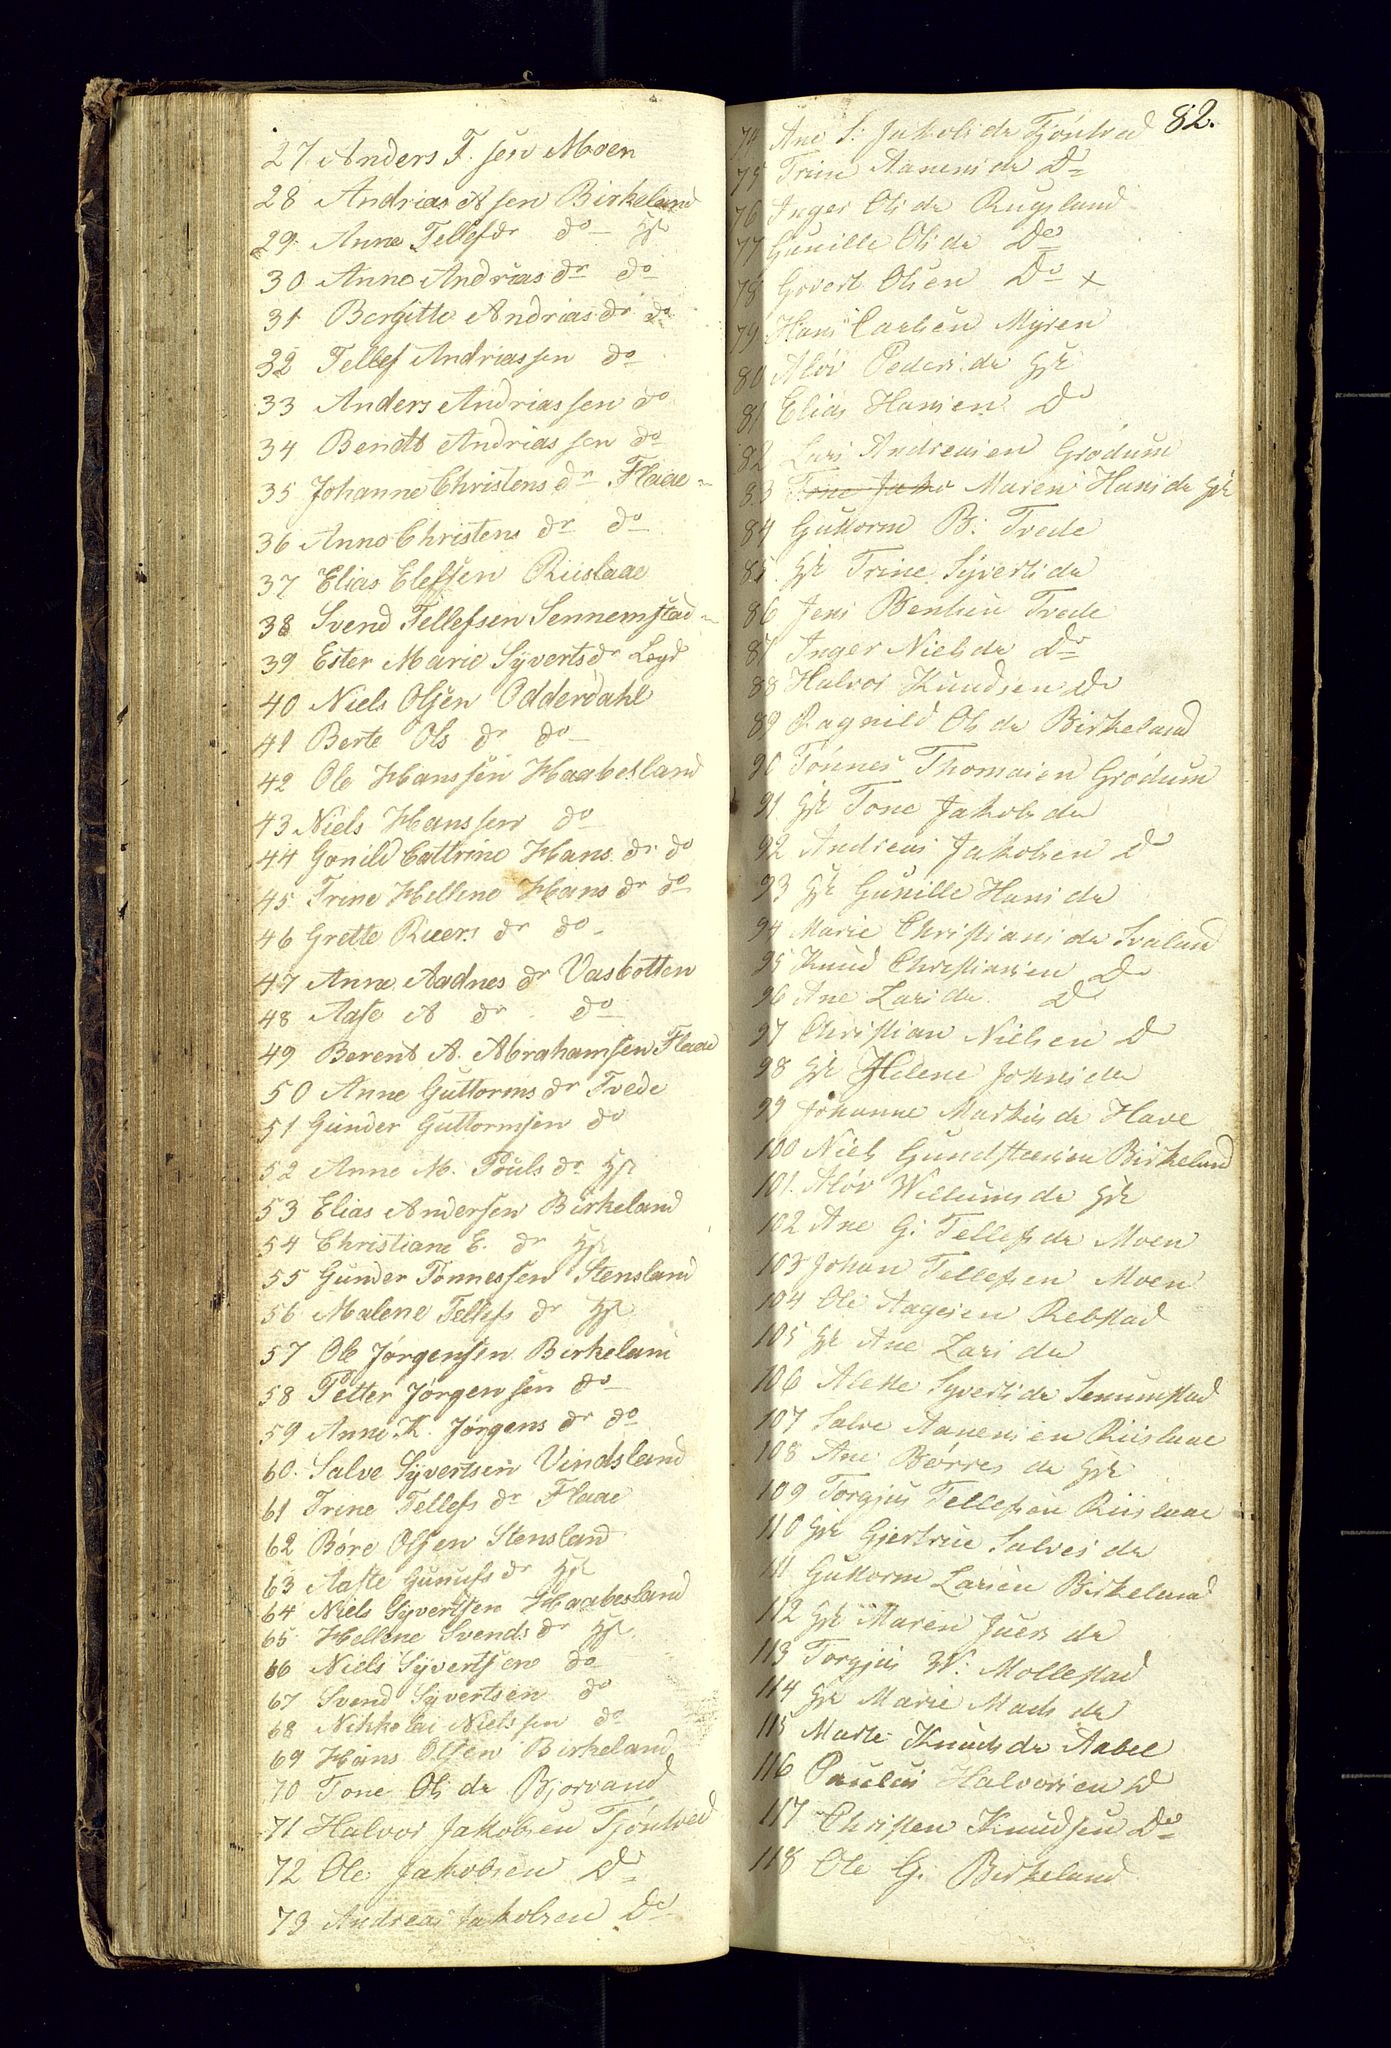 27 Anders T. sen Moen
28 Andrias A sen Birkeland
29 Anne Tellefdr do Hst
30 Anne Andrias dr do
31 Bergitte Andrias dr do
32 Tellef Andriassen do
33 Anders Andriassen do
34 Bendt Andrias sen do
35 Johanne Christens dr Flaae
36 Anne Christens dr do
37 Elias Elefsen Riislaae
38 Svend Tellefsen Sennemstad
39 Ester Marie Syverts dr Legd
40 Niels Olsen Odderdahl
41 Berte Ols dr do
42 Ole Hanssen Haabesland
43 Niels Hanssen do
44 Gonild Cattrine Hans dr do
45 Trine Hellene Hans dr do
46 Grette Roers dr do
47 Anne Aadnes dr Vasbotten
48 Aase A dr do
49 Berent A. Abrahamsen Flaae
50 Anne Guttorms dr Tvede
51 Gunder Guttormsen do
52 Anne M. Pouls dr Hst
53 Elias Andersen Birkeland
54 Christiane E. dr Hst
55 Gunder Tonnessen Stensland
56 Malene Tellefs dr Hst
57 Ole Jørgensen Birkeland
58 Petter Jørgensen do
59 Anne K. Jørgens dr do
60. Salve Syvertsen Vindsland
61 Trine Tellefs dr Flaae
62 Børe Olsen Stensland
63 Aaste Gunufs dr Hst
64 Niels Syvertsen Haabesland
65 Hellene Svends dr Hst
66 Niels Syvertsen do
67 Svend Syvertsen do
68 Nikkolai Nielssen do
69 Hans Olsen Birkeland
70 Tone Ols da Bjorvand
71 Halvor Jakobsen Tjöntved
72 Ole Jakobsen Do
73 Andreas Jakobsen Do
82.
74 Ane S: Jakobs da Tjöntved
75 Trine Aanens da Do
76 Inger Ols da Rugsland
77 Gunille Ols da Do
78 Govert Olsen Do x
79 Hans Carlsen Myren
80 Aslöv Peders da Hst
81 Elias Hansen Do
82 Lars Andreasen Grödum
83 Trine Jako Maren Hans da Hst
84 Guttorm B: Tvede
85 Hst Trine Syverts da
86 Jens Bentsen Tvede
87 Inger Niels da Do
88 Halvor Knudsen Do
89 Ragnild Ols da Birkeland
90 Tönnes Thomasen Grödum
91 Hst Tone Jakobs da
92 Andreas Jakobsen Do
93 Hst Gunille Hans da
94 Marie Christians da Svaland
95 Knud Christiansen Do
96 Ane Lars da Do
97 Christian Nielsen Do
98 Hst Helene Johns da
99 Johanne Markus da Have
100 Niels Gundstensen Birkeland
101. Aslöv Willums da Hst
102 Ane G: Tellefs da Moen
103 Johan Tellefsen Moen
104 Ole Aagesen Rebstad
105 Hst Ane Lars da
106 Alette Syverts da Senumstad
107 Salve Aanensen Riislaae
108 Ane Børres da Hst
109 Torgjus Tellefsen Riislaae
110 Hst Gjertrue Salves da
111 Guttorm Larsen Birkeland
112 Hst Maren Juers da
113 Torgjus W: Mollestad
114 Hst Marie Mads da
115 Marte Knuds da Aabel
116 Paulus Halvorsen Do
117 Christen Knudsen Do
118 Ole G. Birkeland